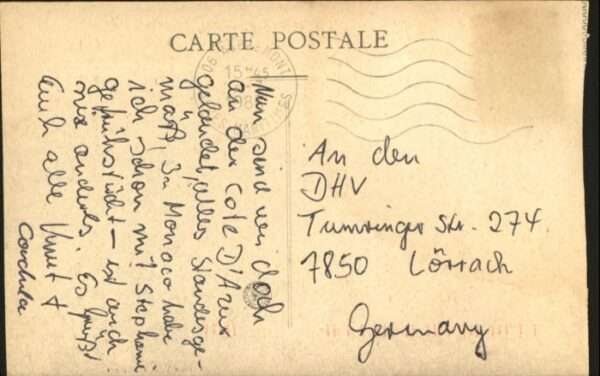 CARTE POSTALE
15-45
Nun sind wir doch
an der Cote D'Azur
gelandet, alles Standesge-
mäß, In Monaco habe
ich schon mit Stephanie
gefrühstückt - ist auch
nix anderes. Es grüßt
Euch alle Knut +
Cordula
An den
DHV
Tumringer Str. 274
7850 Lörrach
Germany